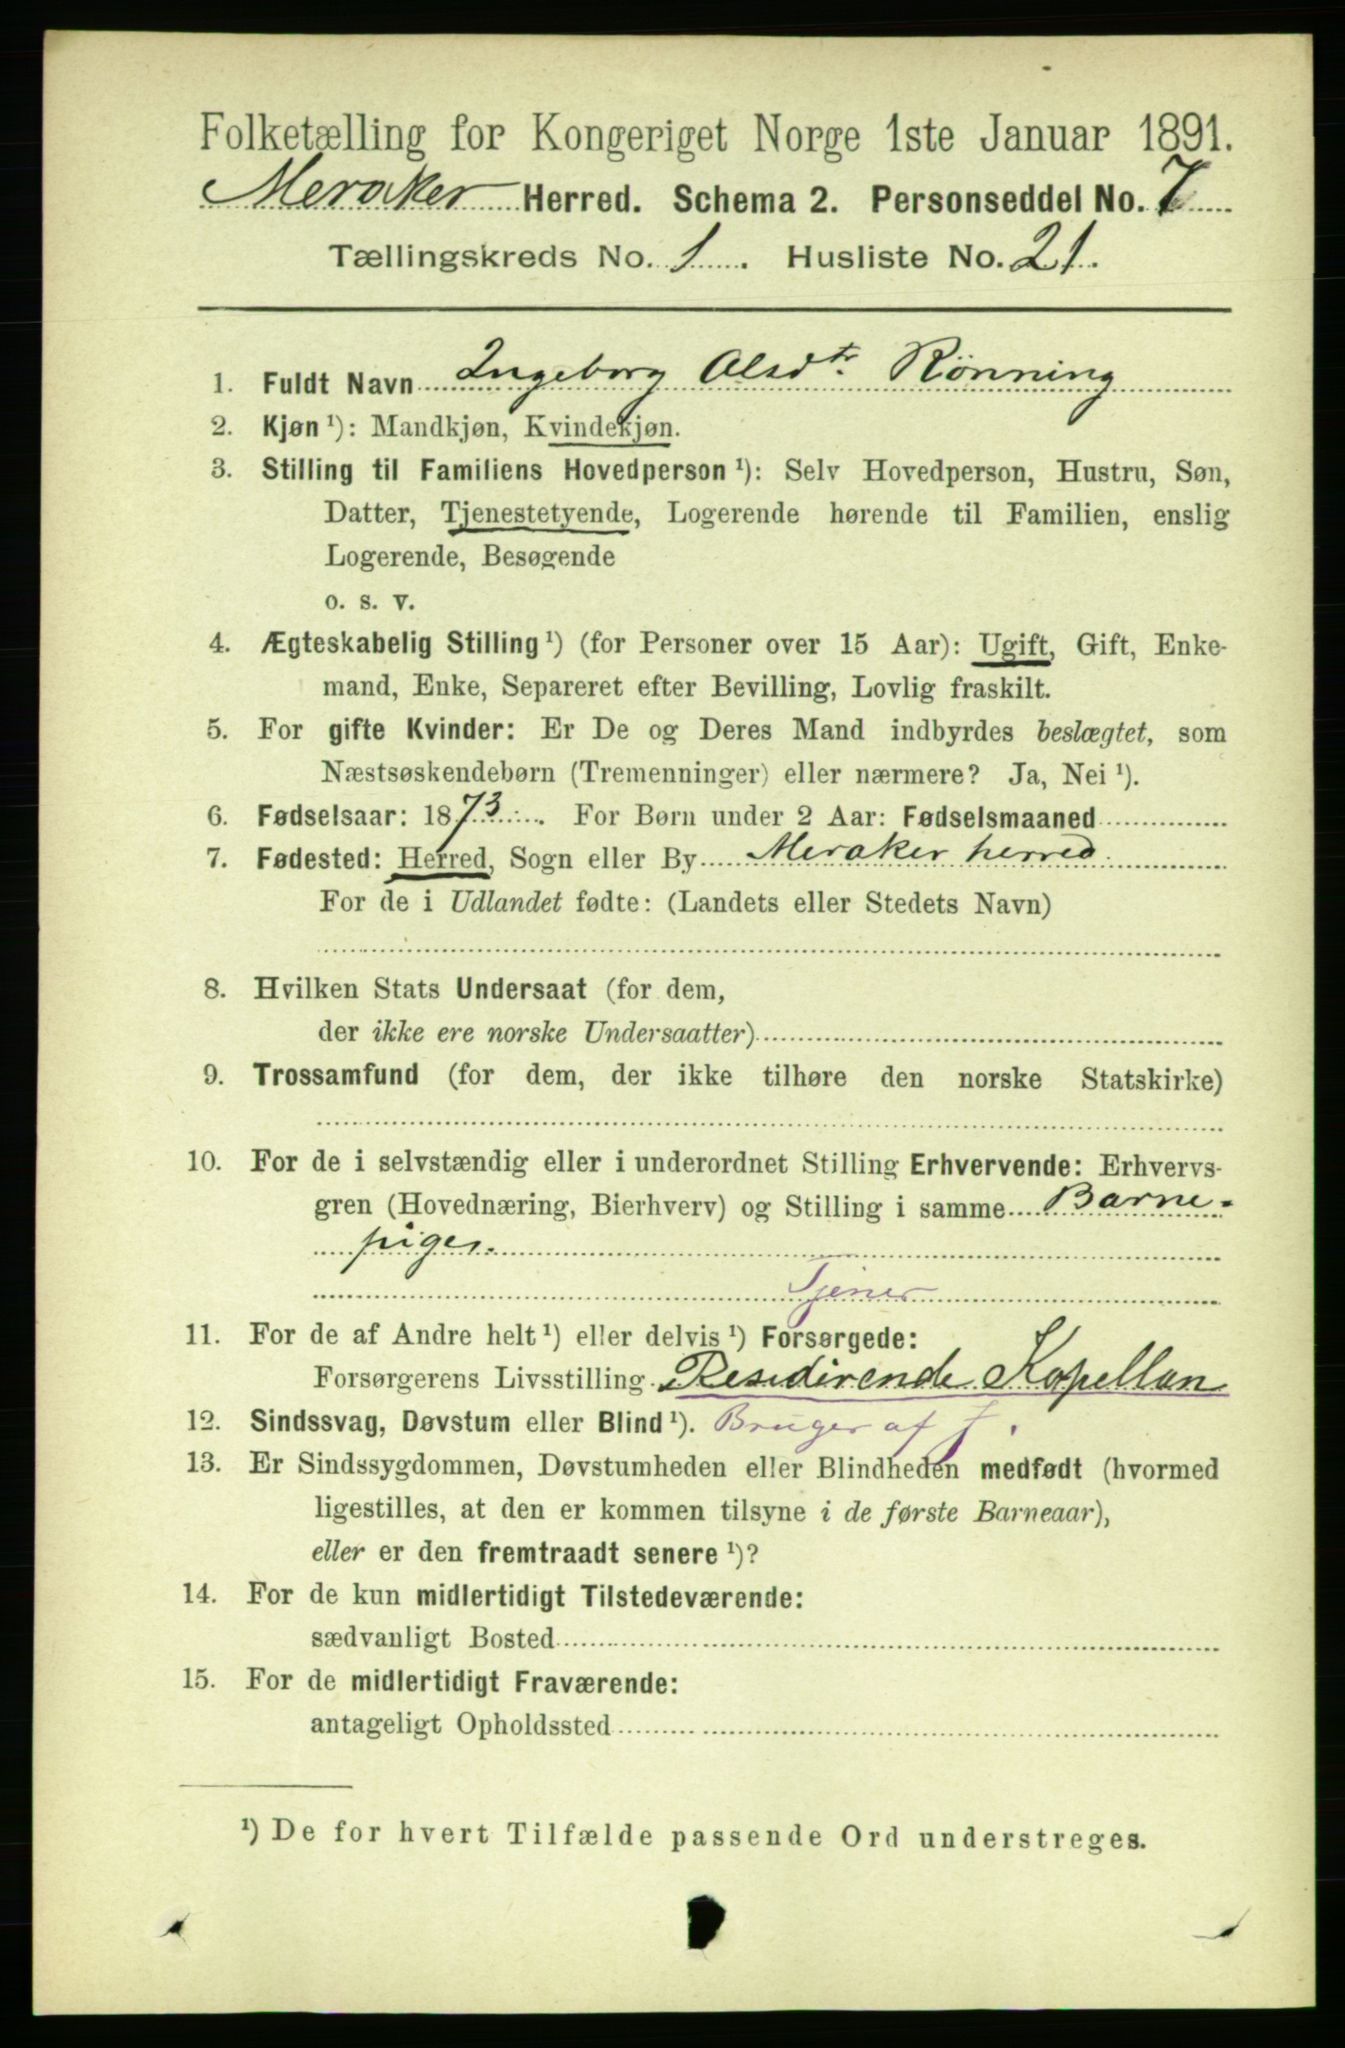 Folketælling for Kongeriget Norge 1ste Januar 1891.
Meraker Herred. Schema 2. Personseddel No. 7
Tællingskreds No. 1. Husliste No. 21.
1. Fuldt Navn Ingeborg Olsdtr. Rönning
2. Kjøn ¹): Mandkjøn, Kvindekjøn.
3. Stilling til Familiens Hovedperson ¹): Selv Hovedperson, Hustru, Søn,
Datter, Tjenestetyende, Logerende hørende til Familien, enslig
Logerende, Besøgende
o. s. v.
4. Ægteskabelig Stilling ¹) (for Personer over 15 Aar): Ugift, Gift, Enke-
mand, Enke, Separeret efter Bevilling, Lovlig fraskilt.
5. For gifte Kvinder: Er De og Deres Mand indbyrdes beslægtet, som
Næstsøskendebørn (Tremenninger) eller nærmere? Ja, Nei ¹).
6. Fødselsaar: 1873. For Børn under 2 Aar: Fødselsmaaned
7. Fødested: Herred, Sogn eller By Meraker herred.
For de i Udlandet fødte: (Landets eller Stedets Navn)
8. Hvilken Stats Undersaat (for dem,
der ikke ere norske Undersaatter)
9. Trossamfund (for dem, der ikke tilhøre den norske Statskirke)
10. For de i selvstændig eller i underordnet Stilling Erhvervende: Erhvervs-
gren (Hovednæring, Bierhverv) og Stilling i samme Barne-
piger.
Tjener
11. For de af Andre helt ¹) eller delvis ¹) Forsørgede:
Forsørgerens Livsstilling Residirende Kapellan
12. Sindssvag, Døvstum eller Blind ¹). Bruger af J.
13. Er Sindssygdommen, Døvstumheden eller Blindheden medfødt (hvormed
ligestilles, at den er kommen tilsyne i de første Barneaar),
eller er den fremtraadt senere ¹)?
14. For de kun midlertidigt Tilstedeværende:
sædvanligt Bosted
15. For de midlertidigt Fraværende:
antageligt Opholdssted
¹) De for hvert Tilfælde passende Ord understreges.